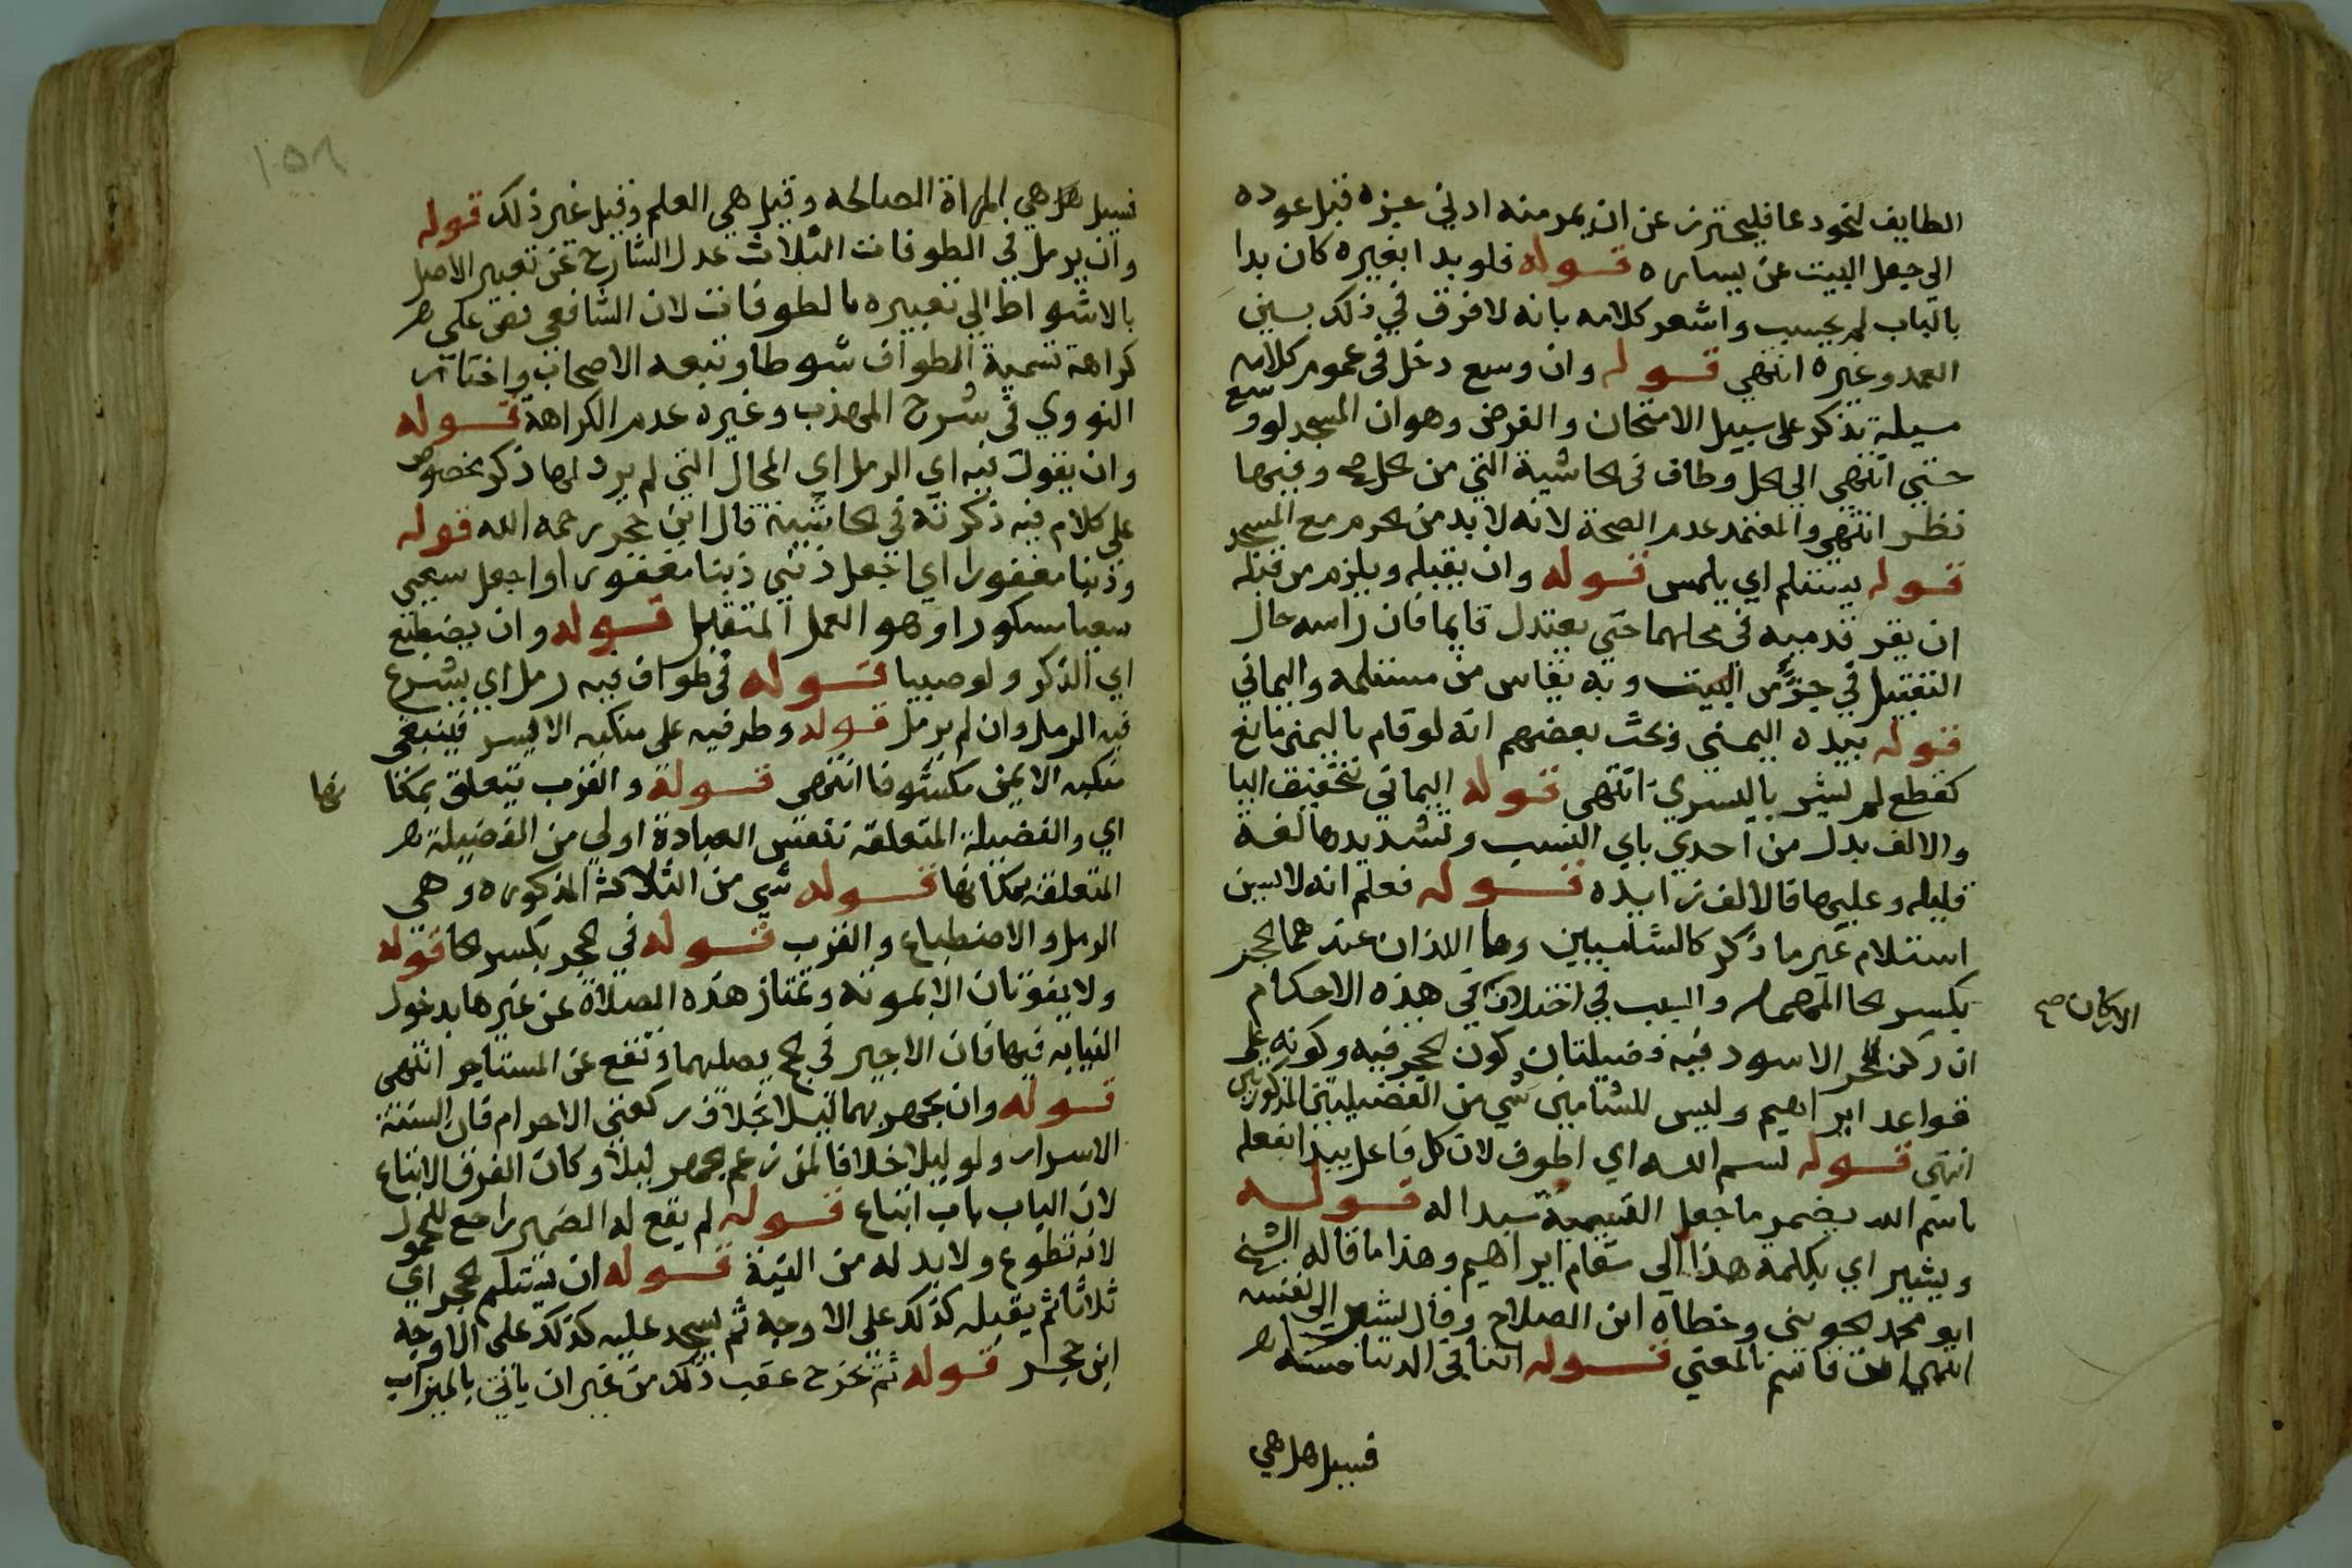 الطايف لنحو دعا فليحترز عن ان يمر منه ادني جزء قبل عوده
الي جعل البيت عن يساره قوله فلو بدا بغيره كان بدا
بالباب لم يحسب واشعر كلامه بانه لا فرق في ذلك بين
العمد وغيره انتهي قوله وان وسع دخل في عموم كلامه
مسيلة تذكر علي سبيل الامتحان والفرض وهو ان المسجد لو وسع
حتي انتهي الي الحل وطاف في الحاشية التي من الحل صح وفيها
نظر انتهي والمعتمد عدم الصحة لانه لا بد من الحرم مع المسجد
قوله يستلم اي يلمس قوله وان يقبله ويلزم من قبله
ان يقر قدميه في محلهما حتي يعتدل قايما فان راسه حال
التقبيل في جزء من البيت وبه يقاس من يستلمه واليماني
قوله بيده اليمني وبحث بعضهم انه لو قام باليمني مانع
كقطع لم يشر باليسري انتهي قوله اليماني بتخفيف اليا
والالف بدل من احدي ياي النسب وتشديدها لغة
قليله وعليها فالالف زايده قوله فعلم انه لا يسن
استلام غير ما ذكر كالشاميين وهما اللذان عندهما الحجر
بكسر الحا المهمله والسبب في اختلاف في هذه الاحكام
الاركان صح
ان ركن الحجر الاسود فيه فضيلتان كون الحجر فيه وكونه علي
قواعد ابراهيم وليس للشاميين شي من الفضيلتين المذكورتين
انتهي قوله بسم الله اي اطوف لان كل فاعل يبدا بفعله
باسم الله يضمر ما جعل التسمية مبدا له قوله
ويشير اي بكلمة هذا الي مقام ابراهيم وهذا ما قاله الشيخ
ابو محمد الجويني وخطاه ابن الصلاح وقال يشير الي نفسه
انتهي ابن قاسم بالمعني قوله اتنا في الدنيا حسنه
فسيل هل هي
١٥٦
فسيل هل هي المراة الصالحه وقيل هي العلم وقيل غير ذلك قوله
وان يرمل في الطوفات الثلاث عدل الشارح عن تعبير الاصل
بالاشواط الي تعبيره بالطوفات لان الشافعي نص علي
كراهة تسمية الطواف شوطا وتبعه الاصحاب واختار
النووي في شرح المهذب وغيره عدم الكراهة قوله
وان يقول فيه اي الرمل اي المحال التي لم يرد لها ذكر بخصوص
علي كلام فيه ذكرته في الحاشية قال ابن حجر رحمه الله قوله
وذنبا مغفورا اي اجعل ذنبي ذنبا مغفورا واجعل سعيي
سعيا مشكورا وهو العمل المتقبل قوله وان يضطبع
اي الذكر ولو صبيا قوله في طواف فيه رمل اي يشرع
فيه الرمل وان لم يرمل قوله وطرفيه علي منكبه الايسر فينبغي
منكبه الايمن مكشوفا انتهي قوله والقرب يتعلق بمكا
نها
اي والفضيلة المتعلقه بنفس العبادة اولي من الفضيلة
المتعلقه بمكانها قوله شي من الثلاثة المذكوره وهي
الرمل والاضطباع والقرب قوله في الحجر بكسر الحا قوله
ولا يفوتان الا بموته وتمتاز هذه الصلاة عن غيرها بدخول
النيابه فيها فان الاجير في الحج يصليهما وتقع عن المستاجر انتهي
قوله وان يجهر بهما ليلا بخلاف ركعتي الاحرام فان السنة
الاسرار ولو ليلا خلافا لمن زعم الجهر ليلا وكان الفرق الاتباع
لان الباب باب اتباع قوله لم يقع له الضمير راجع للمحمول
لانه تطوع ولا بد له من النية قوله ان يستلم الحجر اي
ثلاثا ثم يقبله كذلك علي الاوجه ثم يسجد عليه كذلك علي الاوجه
ابن حجر قوله ثم يخرج عقب ذلك من غير ان ياتي بالميزاب